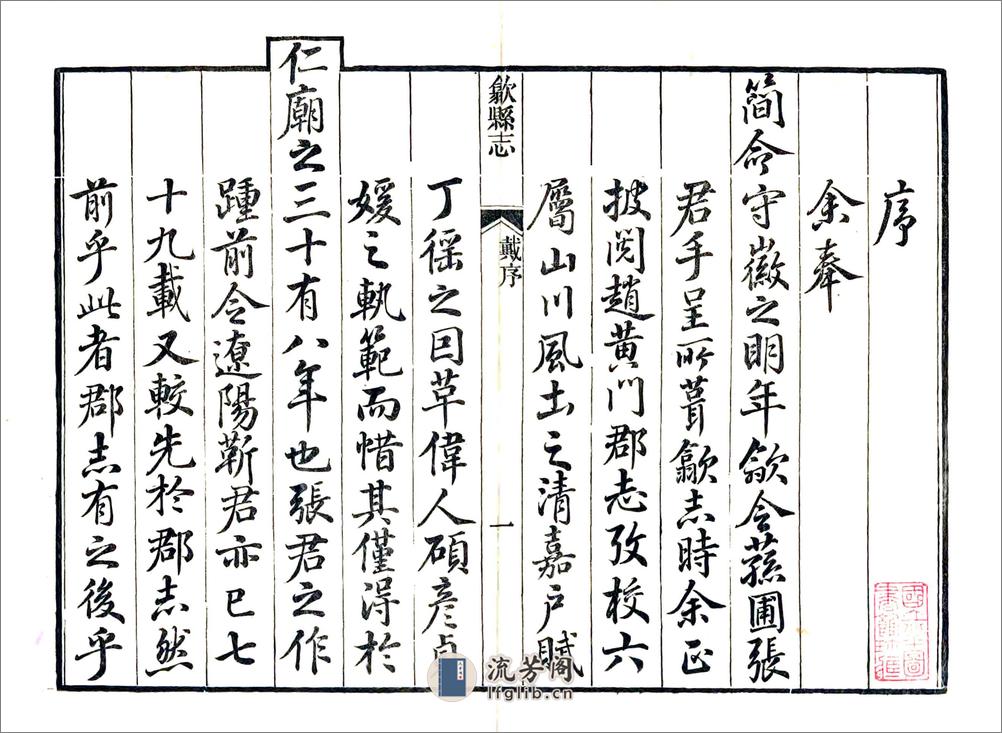 序
余奉
簡命守徽之明年歙令蓀圃張
君手呈所葺歙志時余正
披閱趙黃門郡志攷校六
屬山川風土之清嘉戶賦
歙縣志
戴序
一
丁徭之因革偉人碩彥貞
媛之軌範而惜其僅淂於
仁廟之三十有八年也張君之作
踵前令遼陽靳君亦已七
十九載又較先於郡志然
前乎此者郡志有之後乎
流芳阁
lfglib.cn